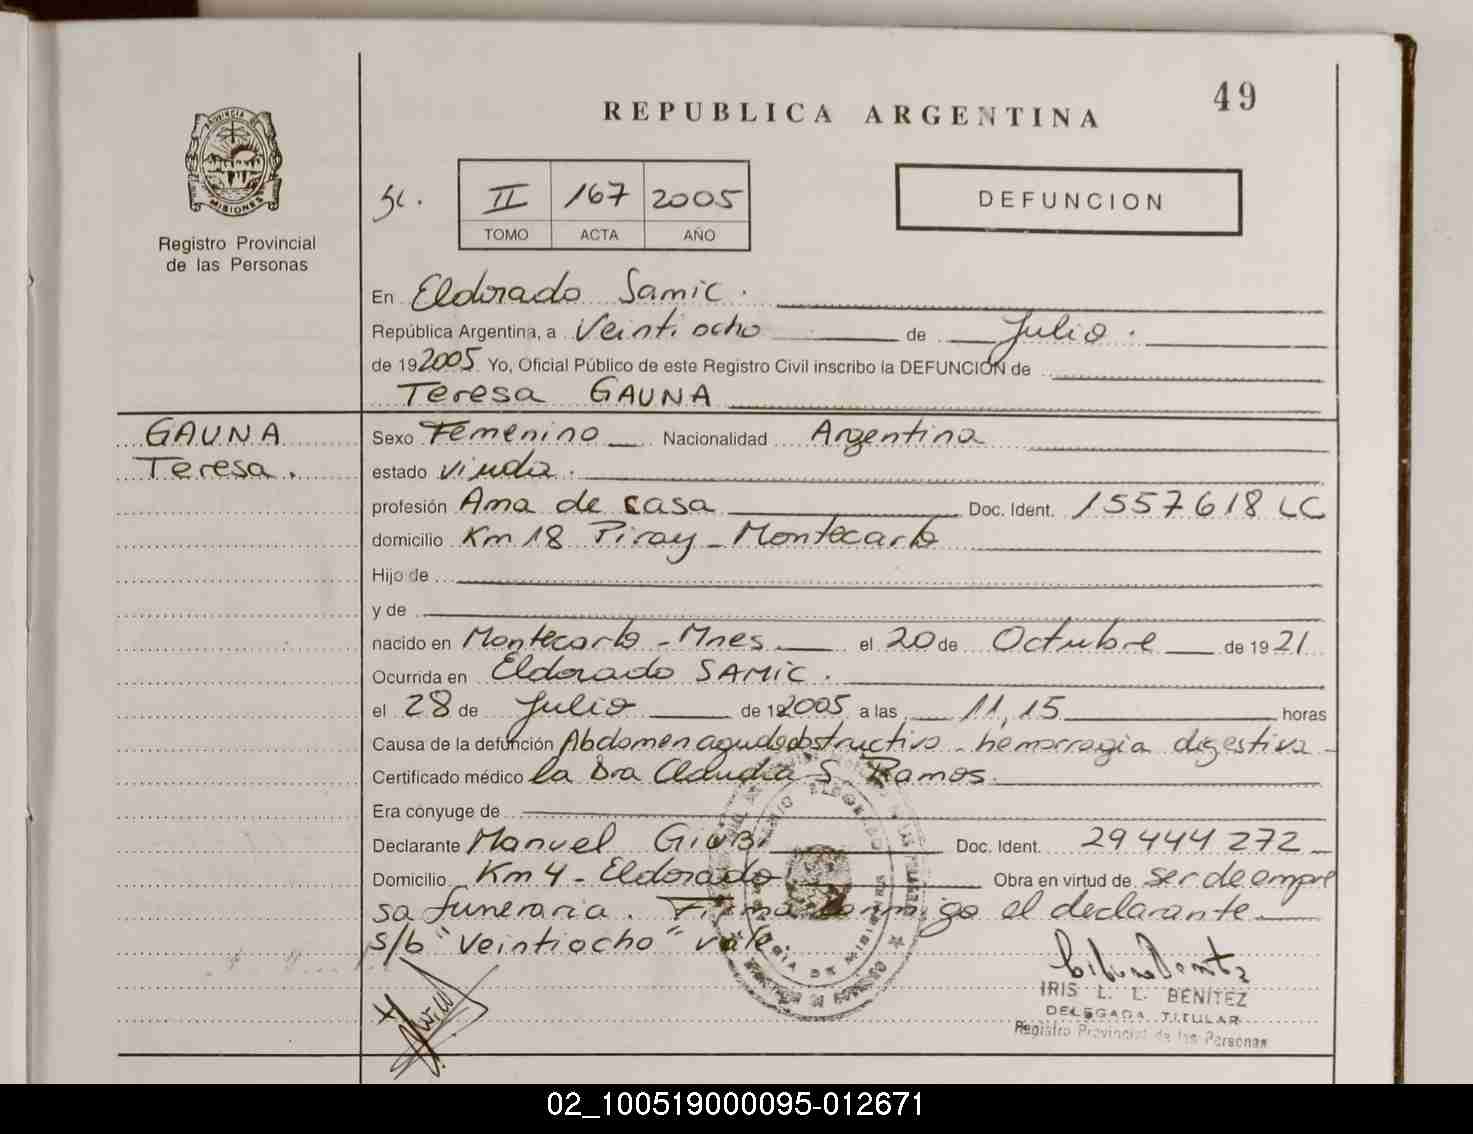 49
REPUBLICA ARGENTINA
PROVINCIA DE
MISIONES
Registro Provincial
de las Personas
II 167 2005
TOMO ACTA AÑO
DEFUNCION
En Eldorado Samic.
República Argentina, a Veintiocho de Julio.
de 192005 Yo, Oficial Público de este Registro Civil inscribo la DEFUNCION de
Teresa GAUNA
GAUNA
Teresa.
Sexo Femenino Nacionalidad Argentina
estado viuda.
profesión Ama de casa Doc. Ident. 1557618 LC
domicilio Km 18 Piray - Montecarlo
Hijo de
y de
nacido en Montecarlo - Mnes el 20 de Octubre de 1921
Ocurrida en Eldorado SAMIC.
el 28 de Julio de 192005 a las 11,15 horas
Causa de la defunción Abdomen agudo obstructivo - hemorragia digestiva -
Certificado médico la Dra Claudia S. Ramos.
Era cónyuge de
Declarante Manuel Doc. Ident. 29444272
Domicilio Km 4 - Eldorado Obra en virtud de ser de empre
sa funeraria. Firma conmigo el declarante
s/b "Veintiocho" vale.
IRIS L. L. BENITEZ
DELEGADA TITULAR
Registro Provincial de las Personas
02_100519000095-012671